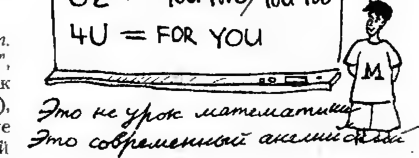 4U = FOR YOU
M
Это не урок математики
Это современный английский